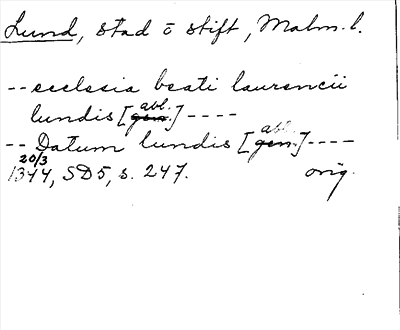 Lund, stad o stift, Malm. l.
-- ecclesia beati laurencii
lundis [gen. abl.] ----
-- Datum lundis [gen. abl.] ----
20/3
1344, SD5, s. 247. orig.